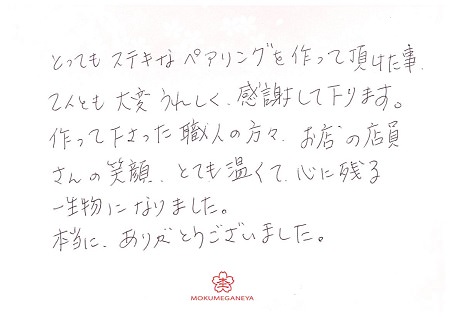 とってもステキなペアリングを作って頂けた事、
2人とも大変うれしく、感謝して下ります。
作って下さった職人の方々、お店の店員
さんの笑顔、とても温くて、心に残る
一生物になりました。
本当に、ありがとうございました。
MOKUMEGANEYA